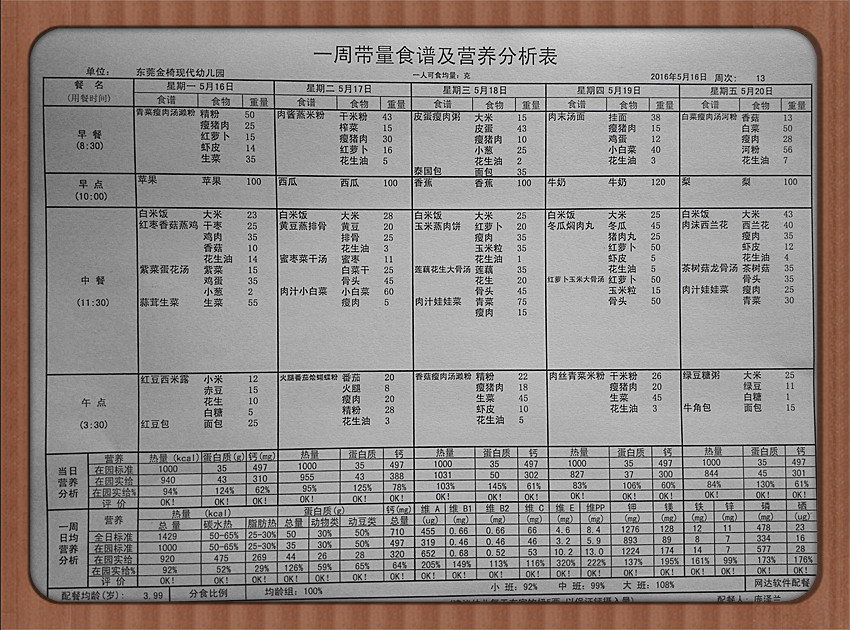 一周带量食谱及营养分析表
单位： 东莞金椅现代幼儿园 一人可食均量：克 2016年5月16日 周次： 13
餐 名 (用餐时间) 星期一 5月16日 星期二 5月17日 星期三 5月18日 星期四 5月19日 星期五 5月20日
食谱 食物 重量 食谱 食物 重量 食谱 食物 重量 食谱 食物 重量 食谱 食物 重量
早 餐 (8:30)
青菜瘦肉汤濑粉 精粉 50 肉酱蒸米粉 干米粉 43 皮蛋瘦肉粥 大米 15 肉末汤面 挂面 38 白菜瘦肉汤河粉 香菇 13
瘦猪肉 25 榨菜 15 皮蛋 43 瘦猪肉 15 白菜 50
红萝卜 15 瘦猪肉 30 瘦猪肉 10 鸡蛋 12 瘦肉 28
虾皮 14 红萝卜 16 小葱 25 小白菜 40 河粉 56
生菜 35 花生油 5 花生油 2 花生油 3 花生油 7
泰国包 面包 35
早 点 (10:00)
苹果 苹果 100 西瓜 西瓜 100 香蕉 香蕉 100 牛奶 牛奶 120 梨 梨 100
中 餐 (11:30)
白米饭 大米 23 白米饭 大米 28 白米饭 大米 25 白米饭 大米 25 白米饭 大米 43
红枣香菇蒸鸡 干枣 25 黄豆蒸排骨 黄豆 20 玉米蒸肉饼 红萝卜 20 冬瓜焖肉丸 冬瓜 45 肉沫西兰花 西兰花 40
鸡肉 35 排骨 25 瘦肉 35 猪肉丸 25 瘦肉 35
香菇 10 花生油 3 玉米粒 35 红萝卜 50 虾皮 12
花生油 14 蜜枣菜干汤 蜜枣 11 花生油 1 虾皮 5 花生油 4
紫菜蛋花汤 紫菜 15 白菜干 25 莲藕花生大骨汤 莲藕 35 花生油 5 茶树菇龙骨汤 茶树菇 35
鸡蛋 35 骨头 45 花生 20 红萝卜玉米大骨汤 红萝卜 50 骨头 35
小葱 2 肉汁小白菜 小白菜 60 骨头 45 玉米粒 15 肉汁娃娃菜 瘦肉 25
蒜茸生菜 生菜 55 瘦肉 5 肉汁娃娃菜 青菜 75 骨头 50 青菜 30
瘦肉 15
午 点 (3:30)
红豆西米露 小米 12 火腿番茄烩蝴蝶粉 番茄 20 香菇瘦肉汤濑粉 精粉 22 肉丝青菜米粉 干米粉 26 绿豆糖粥 大米 25
赤豆 15 火腿 8 瘦猪肉 18 瘦猪肉 20 绿豆 11
花生 10 瘦肉 20 生菜 45 生菜 45 白糖 1
白糖 5 精粉 28 虾皮 10 花生油 3 牛角包 面包 15
红豆包 面包 25 花生油 3 花生油 5
当日营养分析 营养 热量 (kcal) 蛋白质(g) 钙(mg) 热量 蛋白质 钙 热量 蛋白质 钙 热量 蛋白质 钙 热量 蛋白质 钙
在园标准 1000 35 497 1000 35 497 1000 35 497 1000 35 497 1000 35 497
在园实给 940 43 310 955 43 388 1031 50 302 827 37 300 844 45 301
在园实给% 94% 124% 62% 95% 125% 78% 103% 145% 61% 83% 106% 60% 84% 130% 61%
评 价 OK! OK! OK! OK! OK! OK! OK! OK! OK! OK! OK! OK! OK! OK! OK!
一周日均营养分析 营养 热量 (kcal) 蛋白质(g) 钙(mg) 维 A 维 B1 维 B2 维 C 维 E 维PP 钾 镁 铁 锌 磷 硒
总 量 碳水热 脂肪热 总量 动物类 动豆类 总量 (ug) (mg) (mg) (mg) (mg) (mg) (mg) (mg) (mg) (mg) (mg) (ug)
全日标准 1429 50-65% 25-30% 50 30% 50% 710 455 0.66 0.66 66 4.6 8.4 1276 128 12 11 478 23
在园标准 1000 50-65% 25-30% 35 30% 50% 497 319 0.46 0.46 46 3.2 5.9 893 89 8 7 334 16
在园实给 920 475 269 44 26 28 320 652 0.68 0.52 53 10.2 13.0 1224 174 14 7 577 28
在园实给% 92% 52% 29% 126% 59% 65% 64% 205% 149% 113% 116% 320% 222% 137% 195% 161% 99% 173% 176%
评 价 OK! OK! OK! OK! OK! OK! OK! OK! OK! OK! OK! OK! OK! OK! OK! OK! OK! OK! OK!
配餐均龄(岁)： 3.99 分食比例 均龄组：100% 小 班：92% 中 班：99% 大 班：108% 网达软件配餐
配餐人：